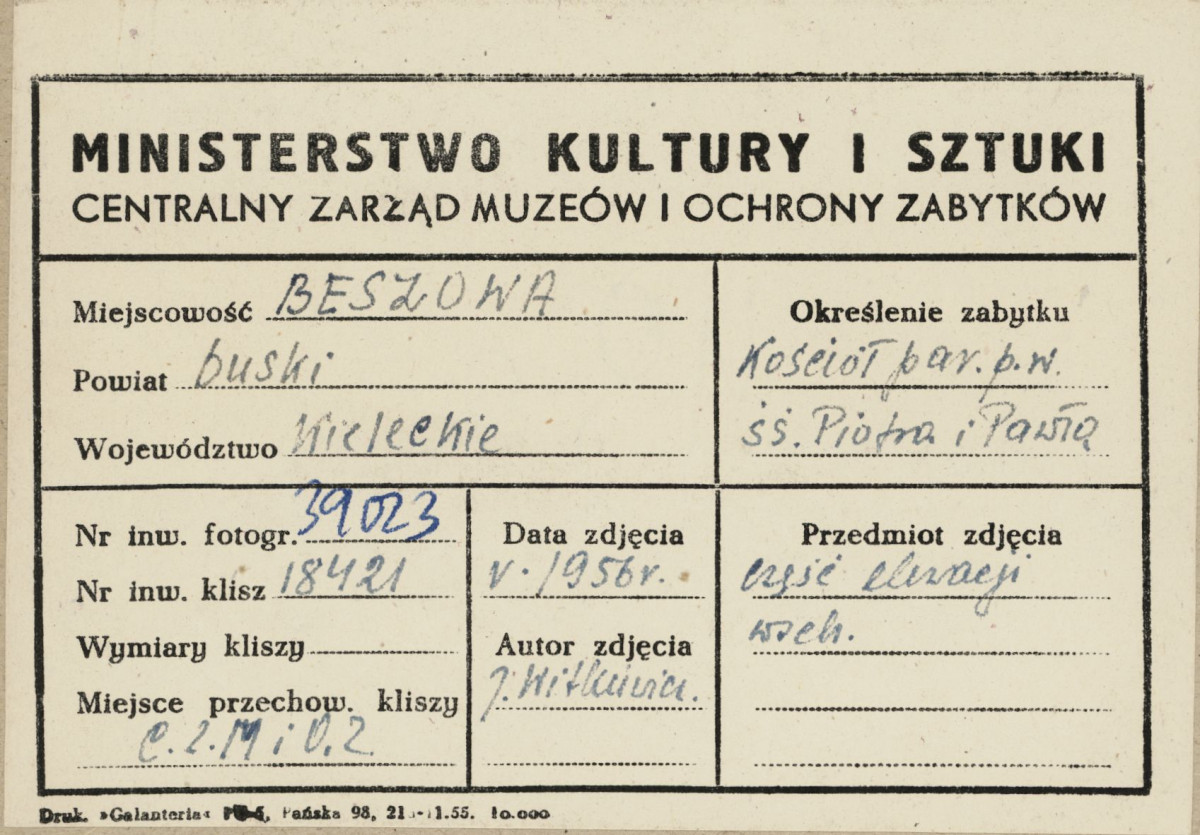 MINISTERSTWO KULTURY I SZTUKI
CENTRALNY ZARZĄD MUZEÓW I OCHRONY ZABYTKÓW
Miejscowość BESZOWA
Powiat buski
Województwo Kieleckie
Określenie zabytku
Kościół par. p.w.
śś. Piotra i Pawła
Nr inw. fotogr. 39023
Nr inw. klisz 18421
Wymiary kliszy
Miejsce przechow. kliszy
C.Z.M i O.Z
Data zdjęcia
V. 1956 r.
Autor zdjęcia
J. Witkiewicz.
Przedmiot zdjęcia
część elewacji
wsch.
Druk. »Galanteria« Pańska 98, 55. 10.000